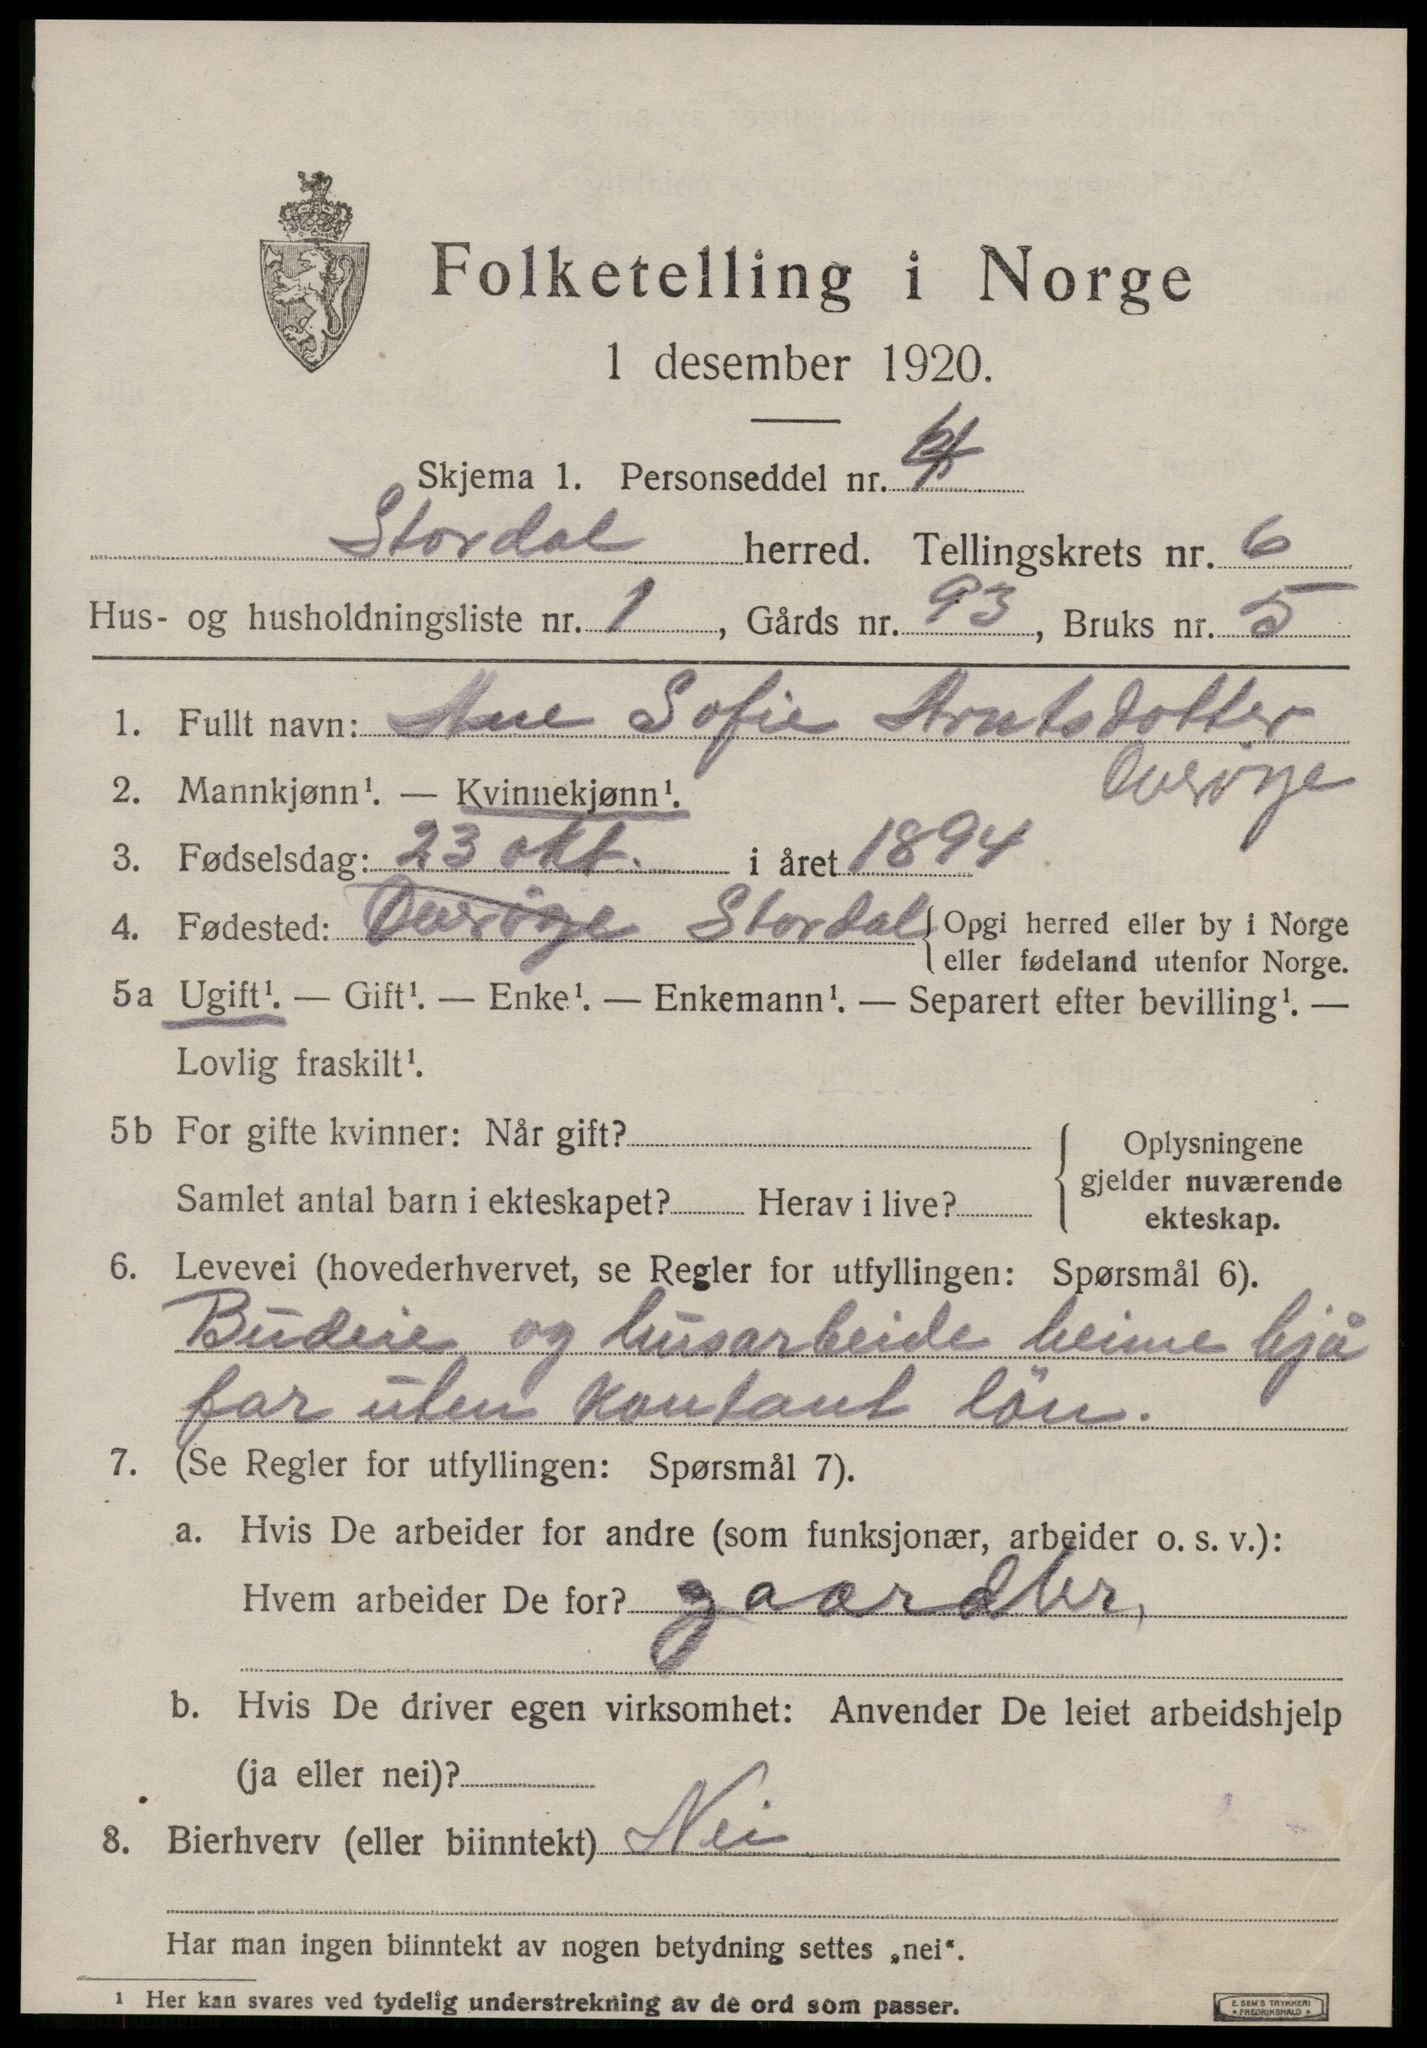 Folketelling i Norge
1 desember 1920.
Skjema 1. Personseddel nr. 4
Stordal herred. Tellingskrets nr. 6
Hus- og husholdningsliste nr. 1, Gårds nr. 93, Bruks nr. 5
1. Fullt navn: Ane Sofie Arntsdotter
Overöye
2. Mannkjønn¹. — Kvinnekjønn¹.
3. Fødselsdag: 23 okt. i året 1894
4. Fødested: Overöye Stordal { Opgi herred eller by i Norge
eller fødeland utenfor Norge.
5a Ugift¹. — Gift¹. — Enke¹. — Enkemann¹. — Separert efter bevilling¹. —
Lovlig fraskilt¹.
5b For gifte kvinner: Når gift?
Samlet antal barn i ekteskapet? Herav i live?
Oplysningene
gjelder nuværende
ekteskap.
6. Levevei (hovederhvervet, se Regler for utfyllingen: Spørsmål 6).
Budeie og husarbeide heime hjå
far uten kontant lön.
7. (Se Regler for utfyllingen: Spørsmål 7).
a. Hvis De arbeider for andre (som funksjonær, arbeider o. s. v.):
Hvem arbeider De for? gaardbr,
b. Hvis De driver egen virksomhet: Anvender De leiet arbeidshjelp
(ja eller nei)?
8. Bierhverv (eller biinntekt) Nei
Har man ingen biinntekt av nogen betydning settes „nei“.
¹ Her kan svares ved tydelig understrekning av de ord som passer.
E. SEM'S TRYKKERI
* FREDRIKSHALD *